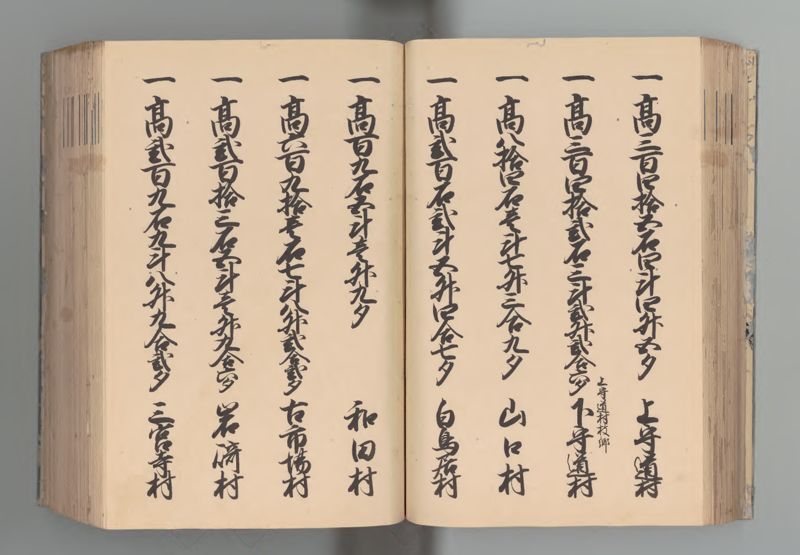 一 高三百四拾五石四斗四升五夕 上守道村
一 高三百四拾弐石三斗弐升弐合六夕 下守道村
上守道村枝郷
一 高八拾四石壱斗七升三合九夕 山口村
一 高弐百石弐斗五升四合七夕 白鳥居村
一 高百九石五斗壱升九夕 和田村
一 高六百九拾壱石七斗八升弐合弐夕 古市場村
一 高弐百拾三石五斗壱升九合六夕 岩崎村
一 高弐百九石九斗八升九合弐夕 三宮寺村